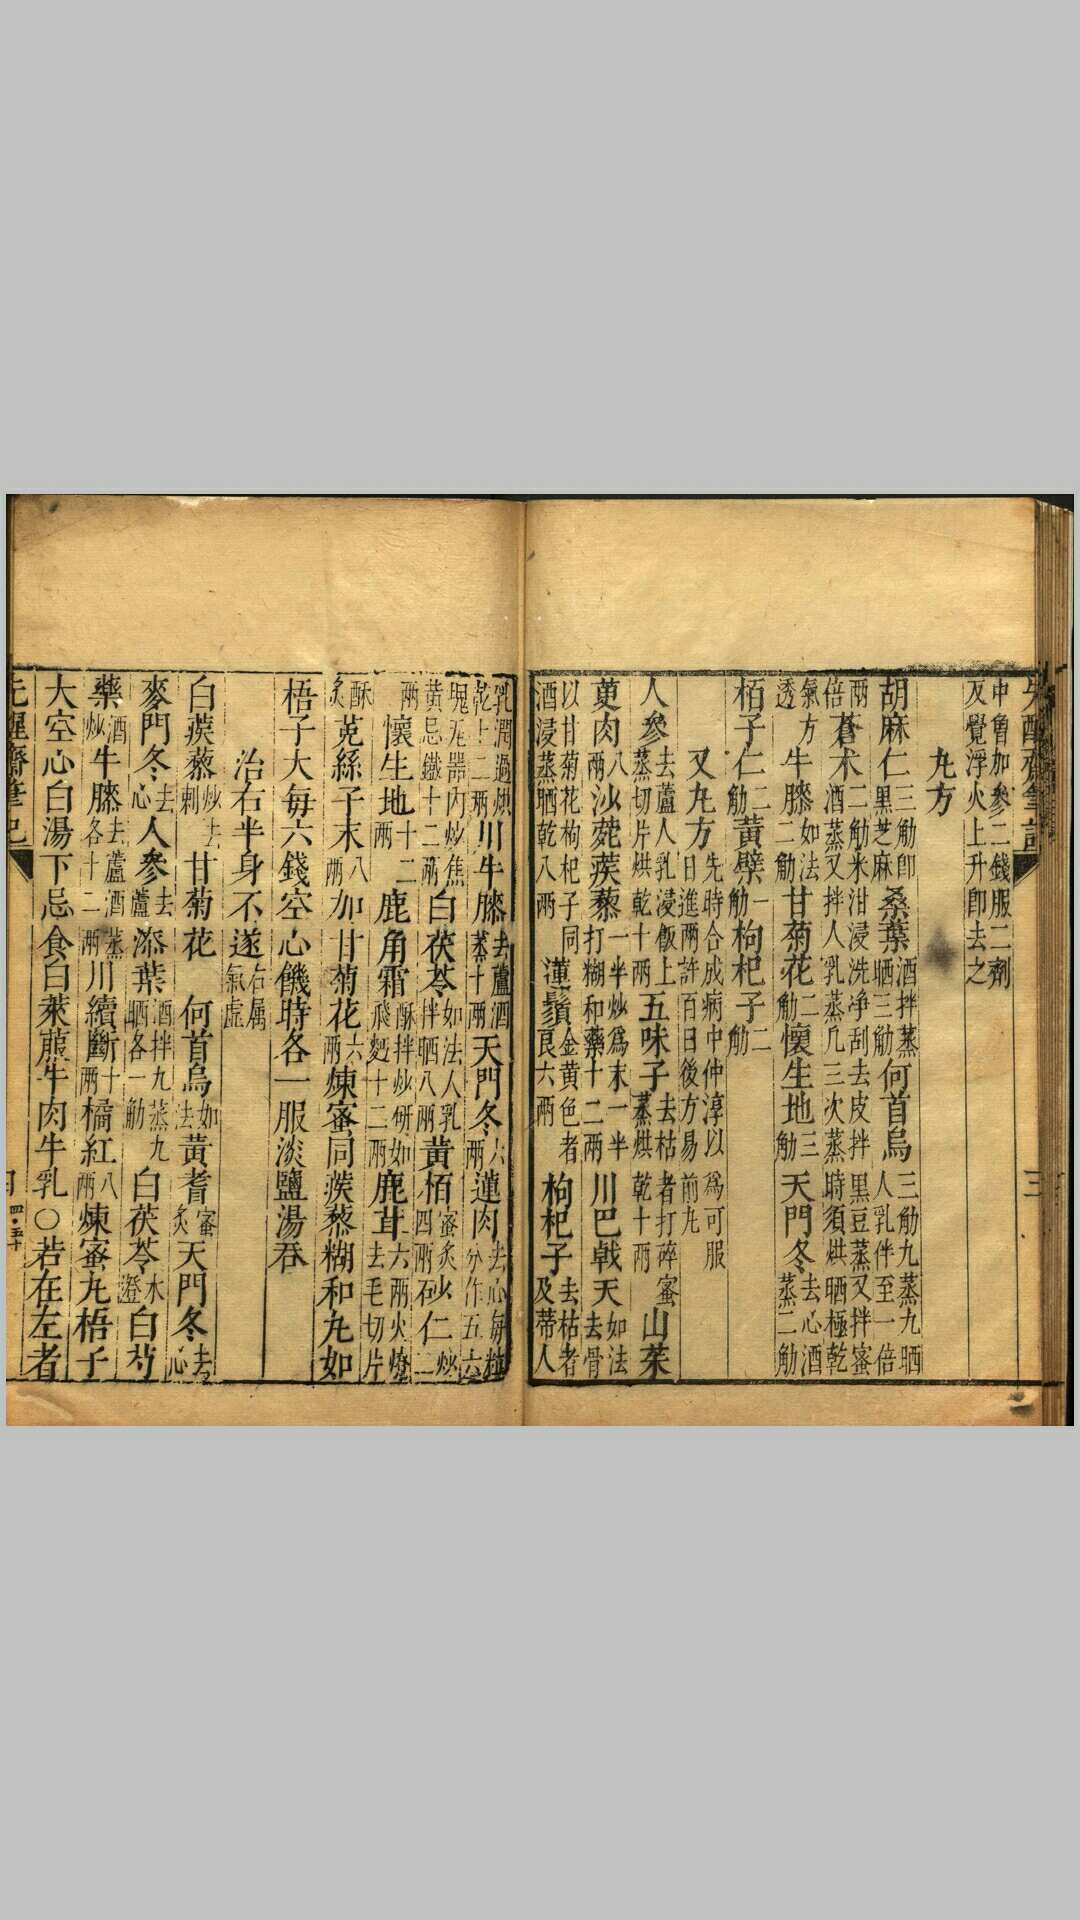 先醒齋筆記
三
中曾加參二錢服二劑
反覺浮火上升卽去之
丸方
胡麻仁三觔卽黑芝麻桑葉酒拌蒸晒三觔何首烏三觔九蒸九晒人乳伴至一倍
兩倍蒼朮二觔米泔浸洗净刮去皮拌酒蒸又拌人乳蒸几三次蒸黑豆蒸又拌蜜時須烘晒極乾
氣透方牛膝如法二觔甘菊花二觔懷生地三觔天門冬去心酒蒸二觔
栢子仁二觔黃蘗一觔枸杞子二觔
又丸方先時合成病中仲淳以為可服日進兩許百日後方易前丸
人參去蘆人乳浸飯上蒸切片烘乾十兩五味子去枯者打碎蜜蒸烘乾十兩山茱
萸肉八兩沙苑蒺藜一半炒為末一半打糊和藥十二兩川巴戟天如法去骨
以甘菊花枸杞子同酒浸蒸晒乾八兩蓮鬚金黃色者良六兩枸杞子去枯者及蒂人
乳潤過烘乾十二兩川牛膝去蘆酒蒸十兩天門冬六兩蓮肉去心每粒分作五六
塊瓦器內炒焦黃忌鐵十二兩白茯苓如法人乳拌晒八兩黃栢蜜炙四兩砂仁炒二
兩懷生地十二兩鹿角霜酥拌炒研如飛麪十二兩鹿茸六兩火燎去毛切片
酥炙菟絲子末八兩加甘菊花六兩煉蜜同蒺藜糊和丸如
梧子大每六錢空心饑時各一服淡鹽湯吞
治右半身不遂右属氣虛
白蒺藜炒去刺甘菊花 何首烏如法黃耆蜜炙天門冬去心
麥門冬去心人參去蘆漆葉酒拌九蒸九晒各一觔白茯苓水澄白芍
藥酒炒牛膝去蘆酒蒸各十二兩川續斷十兩橘紅八兩煉蜜丸梧子
大空心白湯下忌食白萊菔牛肉牛乳〇若在左者
先醒齋筆記
四